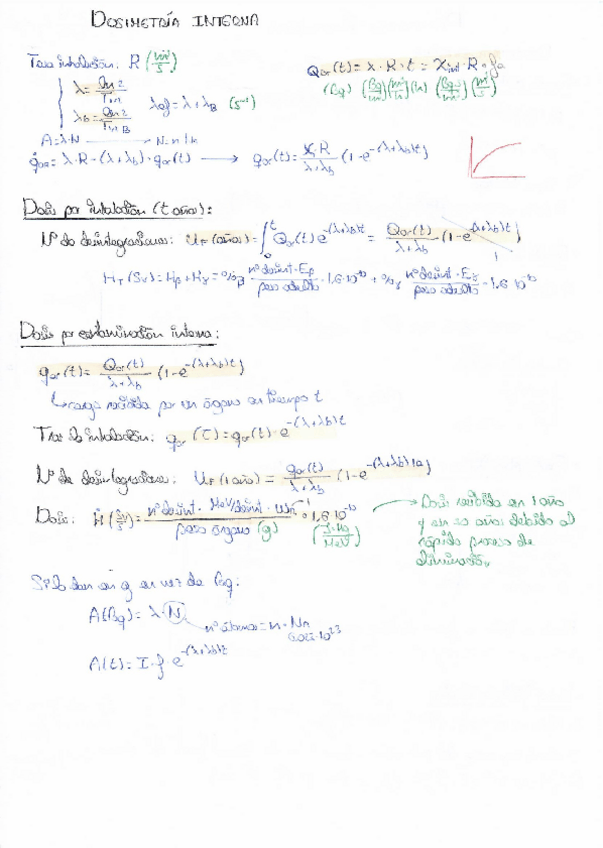 DOSIMETRÍA INTERNA
Tras inhalación: R (m³/s)
λ = Ln 2 / T₁/₂
λb = Ln 2 / T₁/₂ B
λef = λ + λB (s⁻¹)
A = λ·N
q̇or = λ·R - (λ+λb)·qor(t) → qor(t) = R / λ+λb (1-e^-(λ+λb)t)
Dosis por inhalación (t años):
Nº de desintegraciones: UF (años) = ∫₀ᵗ Qor(t) e^-(λ+λb)t = Qor(t) / λ+λb (1-e^-(λ+λb)t)
HT (Sv) = Hβ + Hγ = %β nº desint·Eβ / peso adulto · 1,6·10⁻¹⁰ + %γ nº desint·Eγ / peso adulto · 1,6·10⁻¹⁰
Dosis por contaminación interna:
qor(t) = Qor(t) / λ+λb (1-e^-(λ+λb)t)
↳ carga recibida por un órgano en tiempo t
Tras la inhalación: qor(τ) = qor(t)·e^-(λ+λb)t
Nº de desintegraciones: UF (1 año) = qor(t) / λ+λb (1-e^-(λ+λb)1a)
Dosis: Ḣ (Sv/s) = nº desint · MeV/desint · WR / peso órgano (g) · 1,6·10⁻¹⁰
→ Dosis recibida en 1 año
y en 50 años debido al
rápido proceso de
eliminación
Si lo dan en g en vez de Bq:
A(Bq) = λ·N
nº átomos = n·NA
6,023·10²³
A(t) = I·f·e^-(λ+λb)t